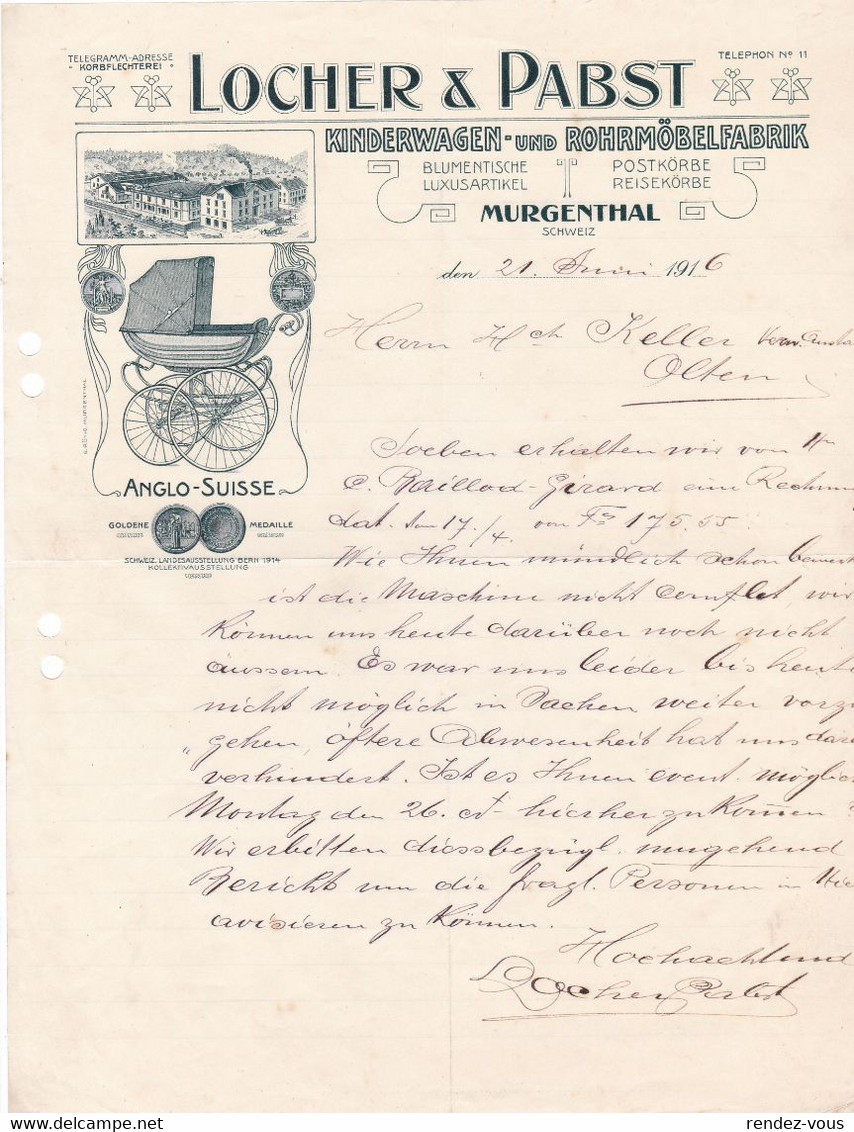 TELEGRAMM-ADRESSE
KORBFLECHTEREI
TELEPHON No 11
LOCHER & PABST
KINDERWAGEN- UND ROHRMÖBELFABRIK
BLUMENTISCHE POSTKÖRBE
LUXUSARTIKEL REISEKÖRBE
MURGENTHAL
SCHWEIZ
den 21. Juni 1916
Herrn Hch Keller
Olten
ANGLO-SUISSE
GOLDENE MEDAILLE
SCHWEIZ. LANDESAUSSTELLUNG BERN 1914
KOLLEKTIVAUSSTELLUNG
Soeben erhalten wir von Hrn
C. Baillod-Girard eine Rechnun
dat. vom 17./4. von Frs 175.55
Wie Ihnen mündlich schon bemerk
ist die Maschine nicht complet, wir
können uns heute darüber noch nicht
äussern. Es war uns leider bis heute
nicht möglich in Sachen weiter vorzu
gehen, öftere Abwesenheit hat uns dara
verhindert. Ist es Ihnen event. möglic
Montag den 26. ct. hierher zu kom̄en ?
Wir erbitten diessbezügl. umgehend
Bericht um die fragl. Personen in Hie
avisieren zu können.
Hochachtend
Locher Pabst
rendez-vous